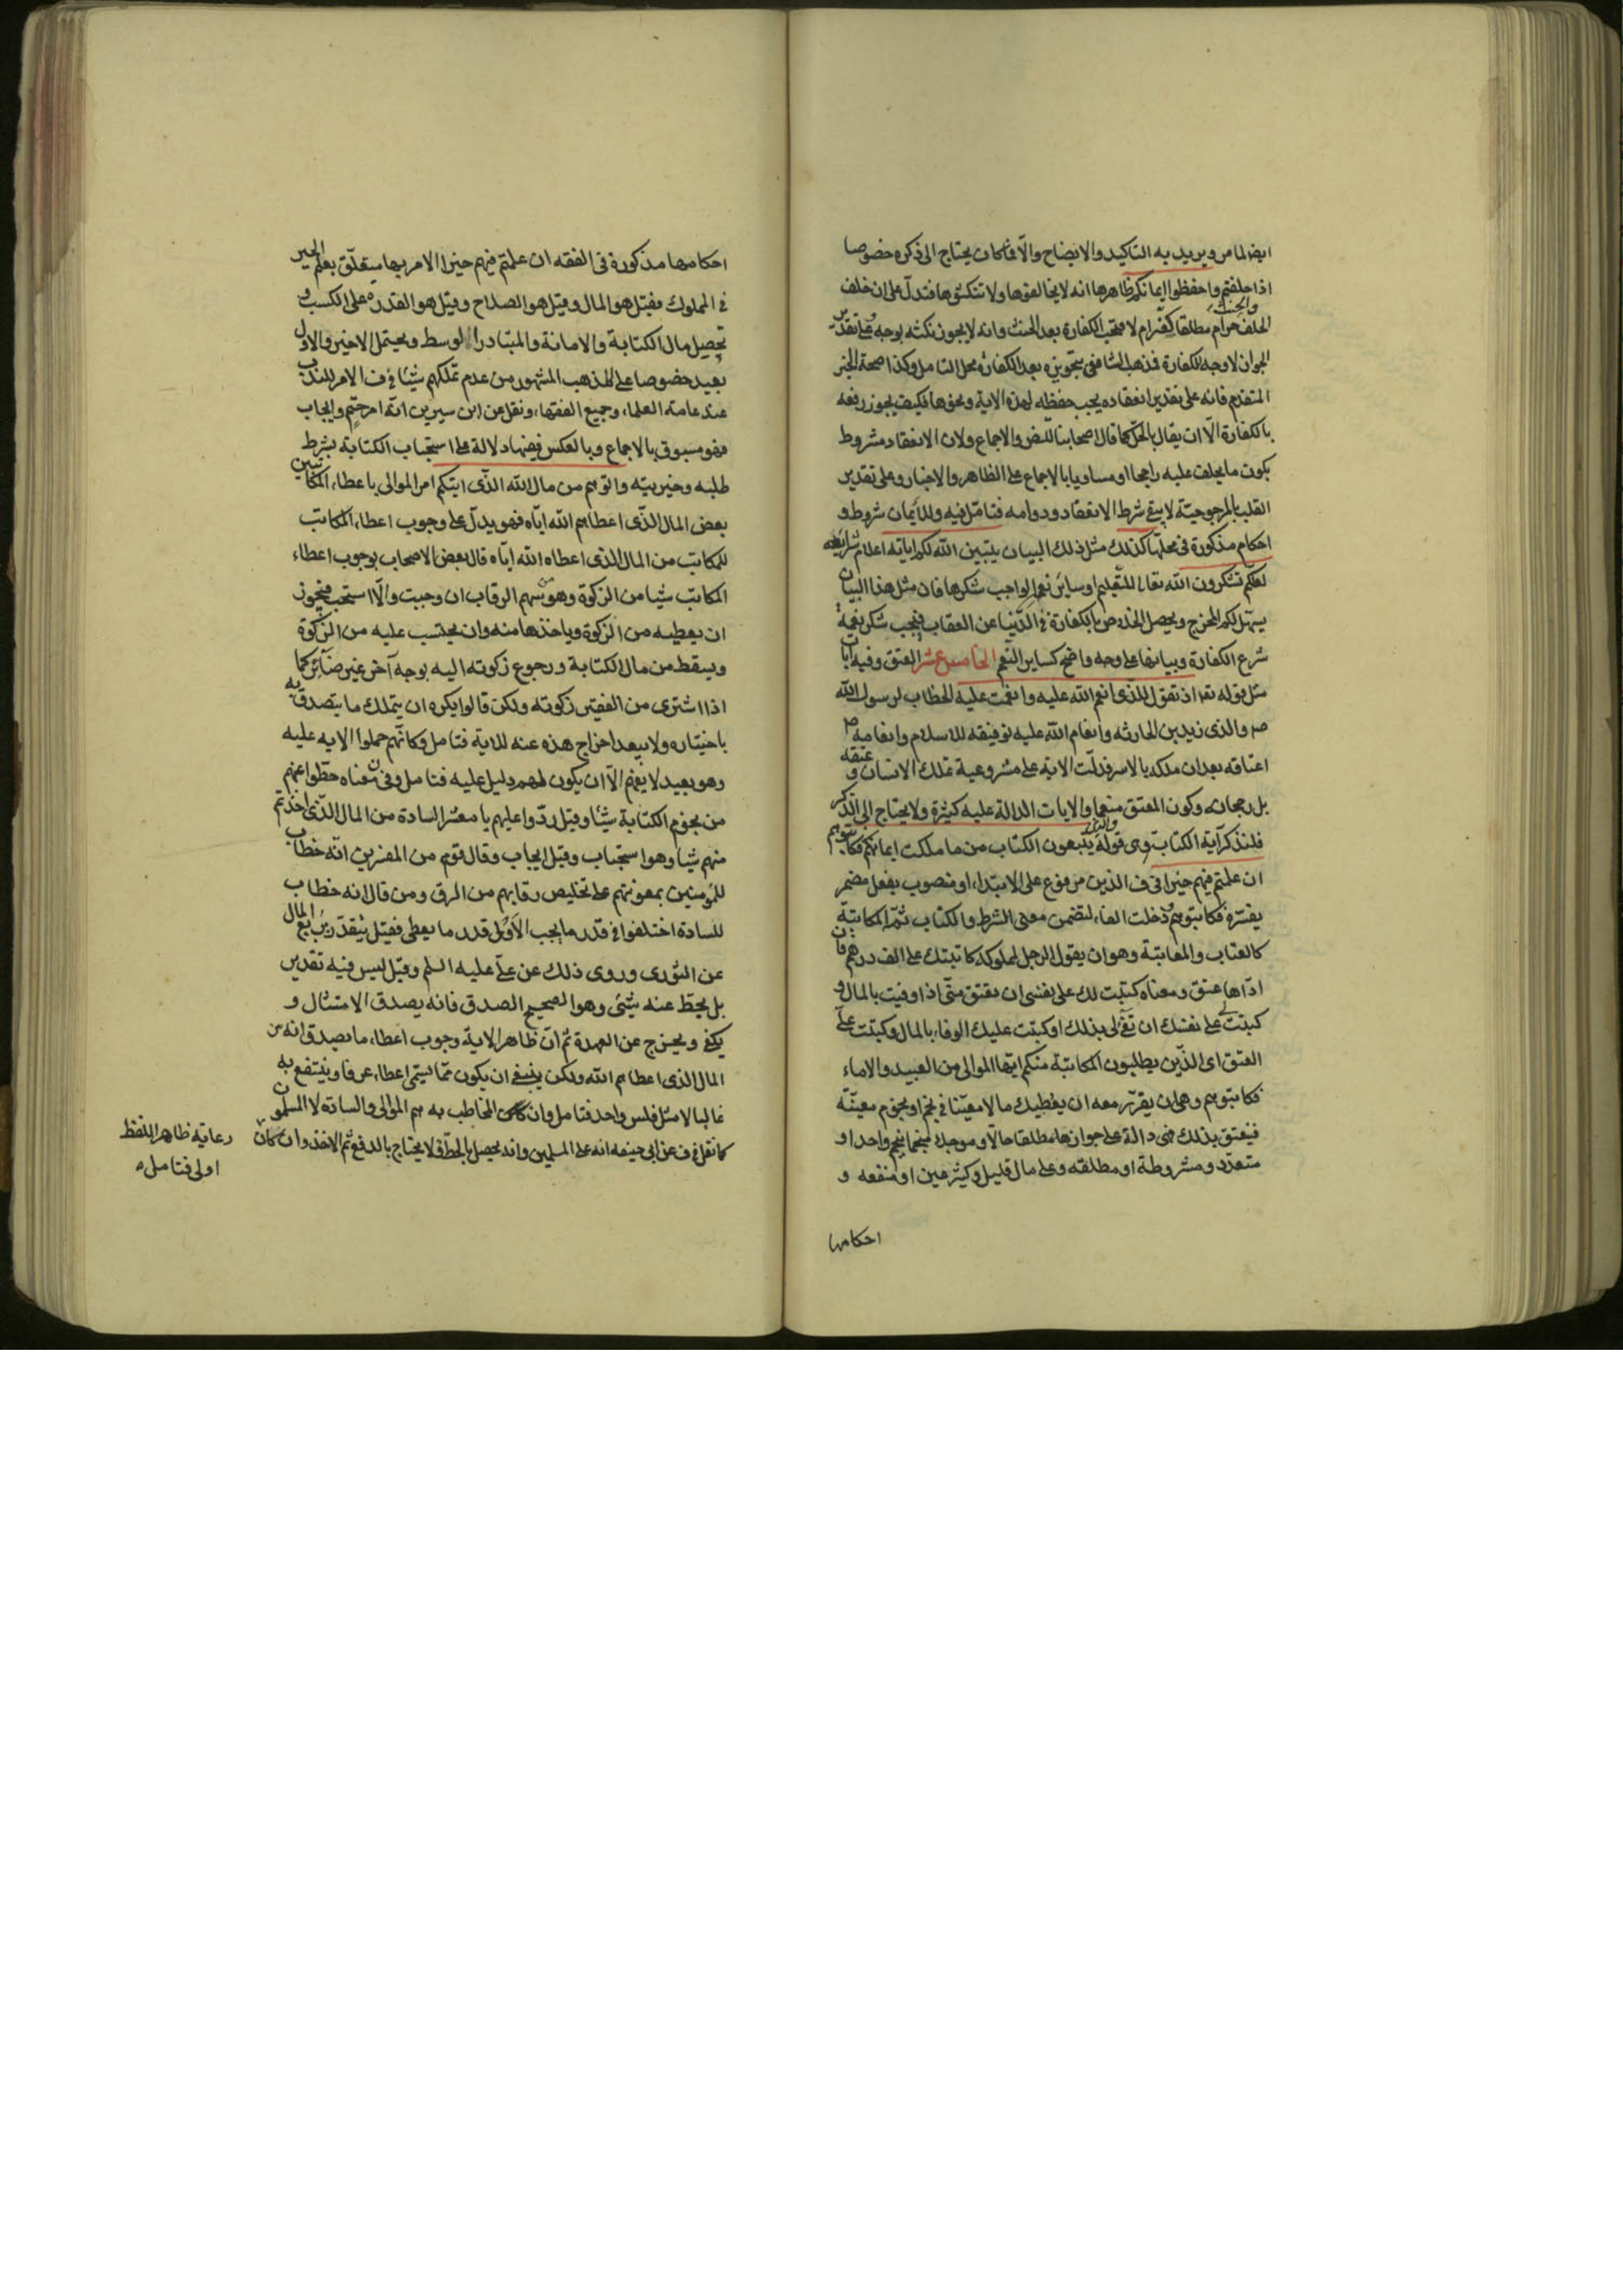 ايضا لما مر ويريد به التاكيد والايضاح والّا فما كان يحتاج الى ذكره خصوصا
اذا حلفتم واحفظوا ايمانكم ظاهرها انه لا يخالفوها ولا تنكثوها فتدلّ على ان خلف
الحلف حرام مطلقا والحنث لا فتجب الكفارة بعد الحنث وانه لا يجوز نكثه بوجه وعلى تقدير
الجواز لا وجه للكفارة فذهب الشافعى بتجويزه بعد الكفارة محل التامل وكذا صحة الخبر
المتقدم فانه على تقدير انعقاده يجب حفظه لهذه الاية ونحوها فكيف يجوز رفعه
بالكفارة الّا ان يقال بالحلّ كما قال اصحابنا للنص والاجماع ولان الانعقاد مشروط
بكون ما يحلف عليه راجحا او مساويا بالاجماع على الظاهر والاخبار وعلى تقدير
القلب بالمرجوحيّة لا يبقى شرط الانعقاد ودوامه فتامّل فيه وللأيمان شروط و
احكام مذكورة فى محلّها كذلك مثل ذلك البيان يبيّن الله لكم اياته اعلام شرايعه
لعلّكم تشكرون الله تعالى للتّعليم او سائر نعمه الواجب شكرها فان مثل هذا البيان
يسهّل لكم المخرج ويحصل الخلاص بالكفارة فى الدّنيا عن العقاب فيجب شكر نعمة
شرع الكفارة وبيانها على وجه واضح كساير النّعم الخامس عشر العتق وفيه آيات
مثل قوله تعا اذ تقول للّذى انعم الله عليه وانعمت عليه الخطاب لرسول الله
ص والذى زيد بن الحارثه وانعام الله عليه توفيقه للاسلام وانعامه ص
اعتاقه بعد ان ملكه بالاسر فدلّت الاية على مشروعية تملك الانسان وعتقه
بل رجحانه وكون المعتق منعما والايات الدالة عليه كثيرة ولا يحتاج الى الذّكر
فلنذكر آية الكتابة وهى قوله والذين يبتغون الكتاب من ما ملكت ايمانكم فكاتبوهم
ان علمتم فيهم خيرا فى ف الذين مرفوع على الابتداء او منصوب بفعل مضمر
يفسّره فكاتبوهم ودخلت الفاء لتضمن معنى الشرط والكتاب ثمّة المكاتبة
كالعتاب والمعاتبة وهو ان يقول الرجل لمملوكه كاتبتك على الف درهم فان
ادّاها عتق ومعناه كتبت لك على نفسى ان تعتق منّى اذا وفيت بالمال و
كتبت لى على نفسك ان تفى لى بذلك او كتبت عليك الوفاء بالمال وكتبت علىّ
العتق اى الّذين يطلبون المكاتبة منكم ايّها الموالى من العبيد والاماء
فكاتبوهم وهى ان يقرّر معه ان يعطيك مالا معيّنا فى نجم او نجوم معيّنة
فيعتق بذلك فهى دالة على جوازها مطلقا حالّا وموجلا منجما بنجم واحد او
متعدّد ومشروطة او مطلقه وعلى مال قليل وكثير عين او منفعه و
احكامها
احكامها مذكورة فى الفقه ان علمتم فيهم خيرا الامر بها يتعلّق بعلم الخير
فى المملوك فقيل هو المال وقيل هو الصلاح وقيل هو القدرة على الكسب و
تحصيل مال الكتابة والامانة والمتبادر الوسط ويحتمل الاخير والاول
بعيد خصوصا على المذهب المشهور من عدم تملكهم شيئا فى ف الامر للندب
عند عامة العلماء وجميع الفقهاء ونقل عن ابن سيرين انّه امر حتم وايجاب
فهو مسبوق بالاجماع وبالعكس ففيها دلالة على استحباب الكتابة بشرط
طلبه وخيريته واتوهم من مال الله الذّى اتيكم امر الموالى باعطاء المكاتبين
بعض المال الذّى اعطاهم الله ايّاه فهو يدلّ على وجوب اعطاء المكاتب
للمكاتب من المال الذى اعطاه الله ايّاه قال بعض الاصحاب بوجوب اعطاء
المكاتب شيا من الزكوة وهو من سهم الرقاب ان وجبت والّا استحب فيجوز
ان يعطيه من الزكوة وياخذها منه وان يحتسب عليه من الزكوة
ويسقط من مال الكتابة ورجوع زكوته اليه بوجه آخر غير ضائر كما
اذا اشترى من الفقير زكوته ولكن قالوا يكره ان يتملك ما يتصدق به
باختياره ولا يبعد اخراج هذه عنه للاية فتامل وكانّهم حملوا الايه عليه
وهو بعيد لا يفهم الّا ان يكون لهم دليل عليه فتامل وفى ن معناه حطّوا عنهم
من نجوم الكتابة شيئا وقيل ردّوا عليهم يا معشر السادة من المال الّذى اخذتم
منهم شيا وهو استحباب وقيل ايجاب وقال قوم من المفسرين انّه خطاب
للمؤمنين بمعونتهم على تخليص رقابهم من الرق ومن قال انه خطاب
للسادة اختلفوا فى قدر ما يجب الاوّل قدر ما يعطى فقيل يتقدّر بربع المال
عن الثورى وروى ذلك عن على عليه السلم وقيل ليس فيه تقدير
بل يحطّ عنه شئ وهو الصحيح الصدق فانه يصدق الامتثال و
يكفى ويخرج عن العهدة ثم انّ ظاهر الاية وجوب اعطاء ما يصدق انه من
المال الذى اعطاهم الله ولكن ينبغى ان يكون ممّا يسمّى اعطاء عرفا وينتفع به
غالبا لا مثل فلس واحد فتامل وان كان المخاطب به هم الموالى والسادة لا المسلمون
كما نقل فى ف عن ابى حنيفه انه على المسلمين وانه يحصل بالحطّ فلا يحتاج بالدفع ثم الاخذ وان كان
رعاية ظاهر اللفظ
اولى فتامل